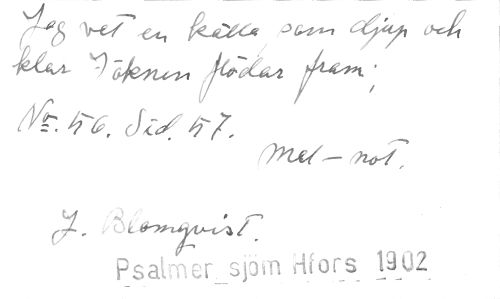 Jag vet en källa, som djup och
klar I öknen flödar fram;
No. 56. Sid. 57.
Mel-not.
J. Blomqvist.
Psalmer sjöm Hfors 1902